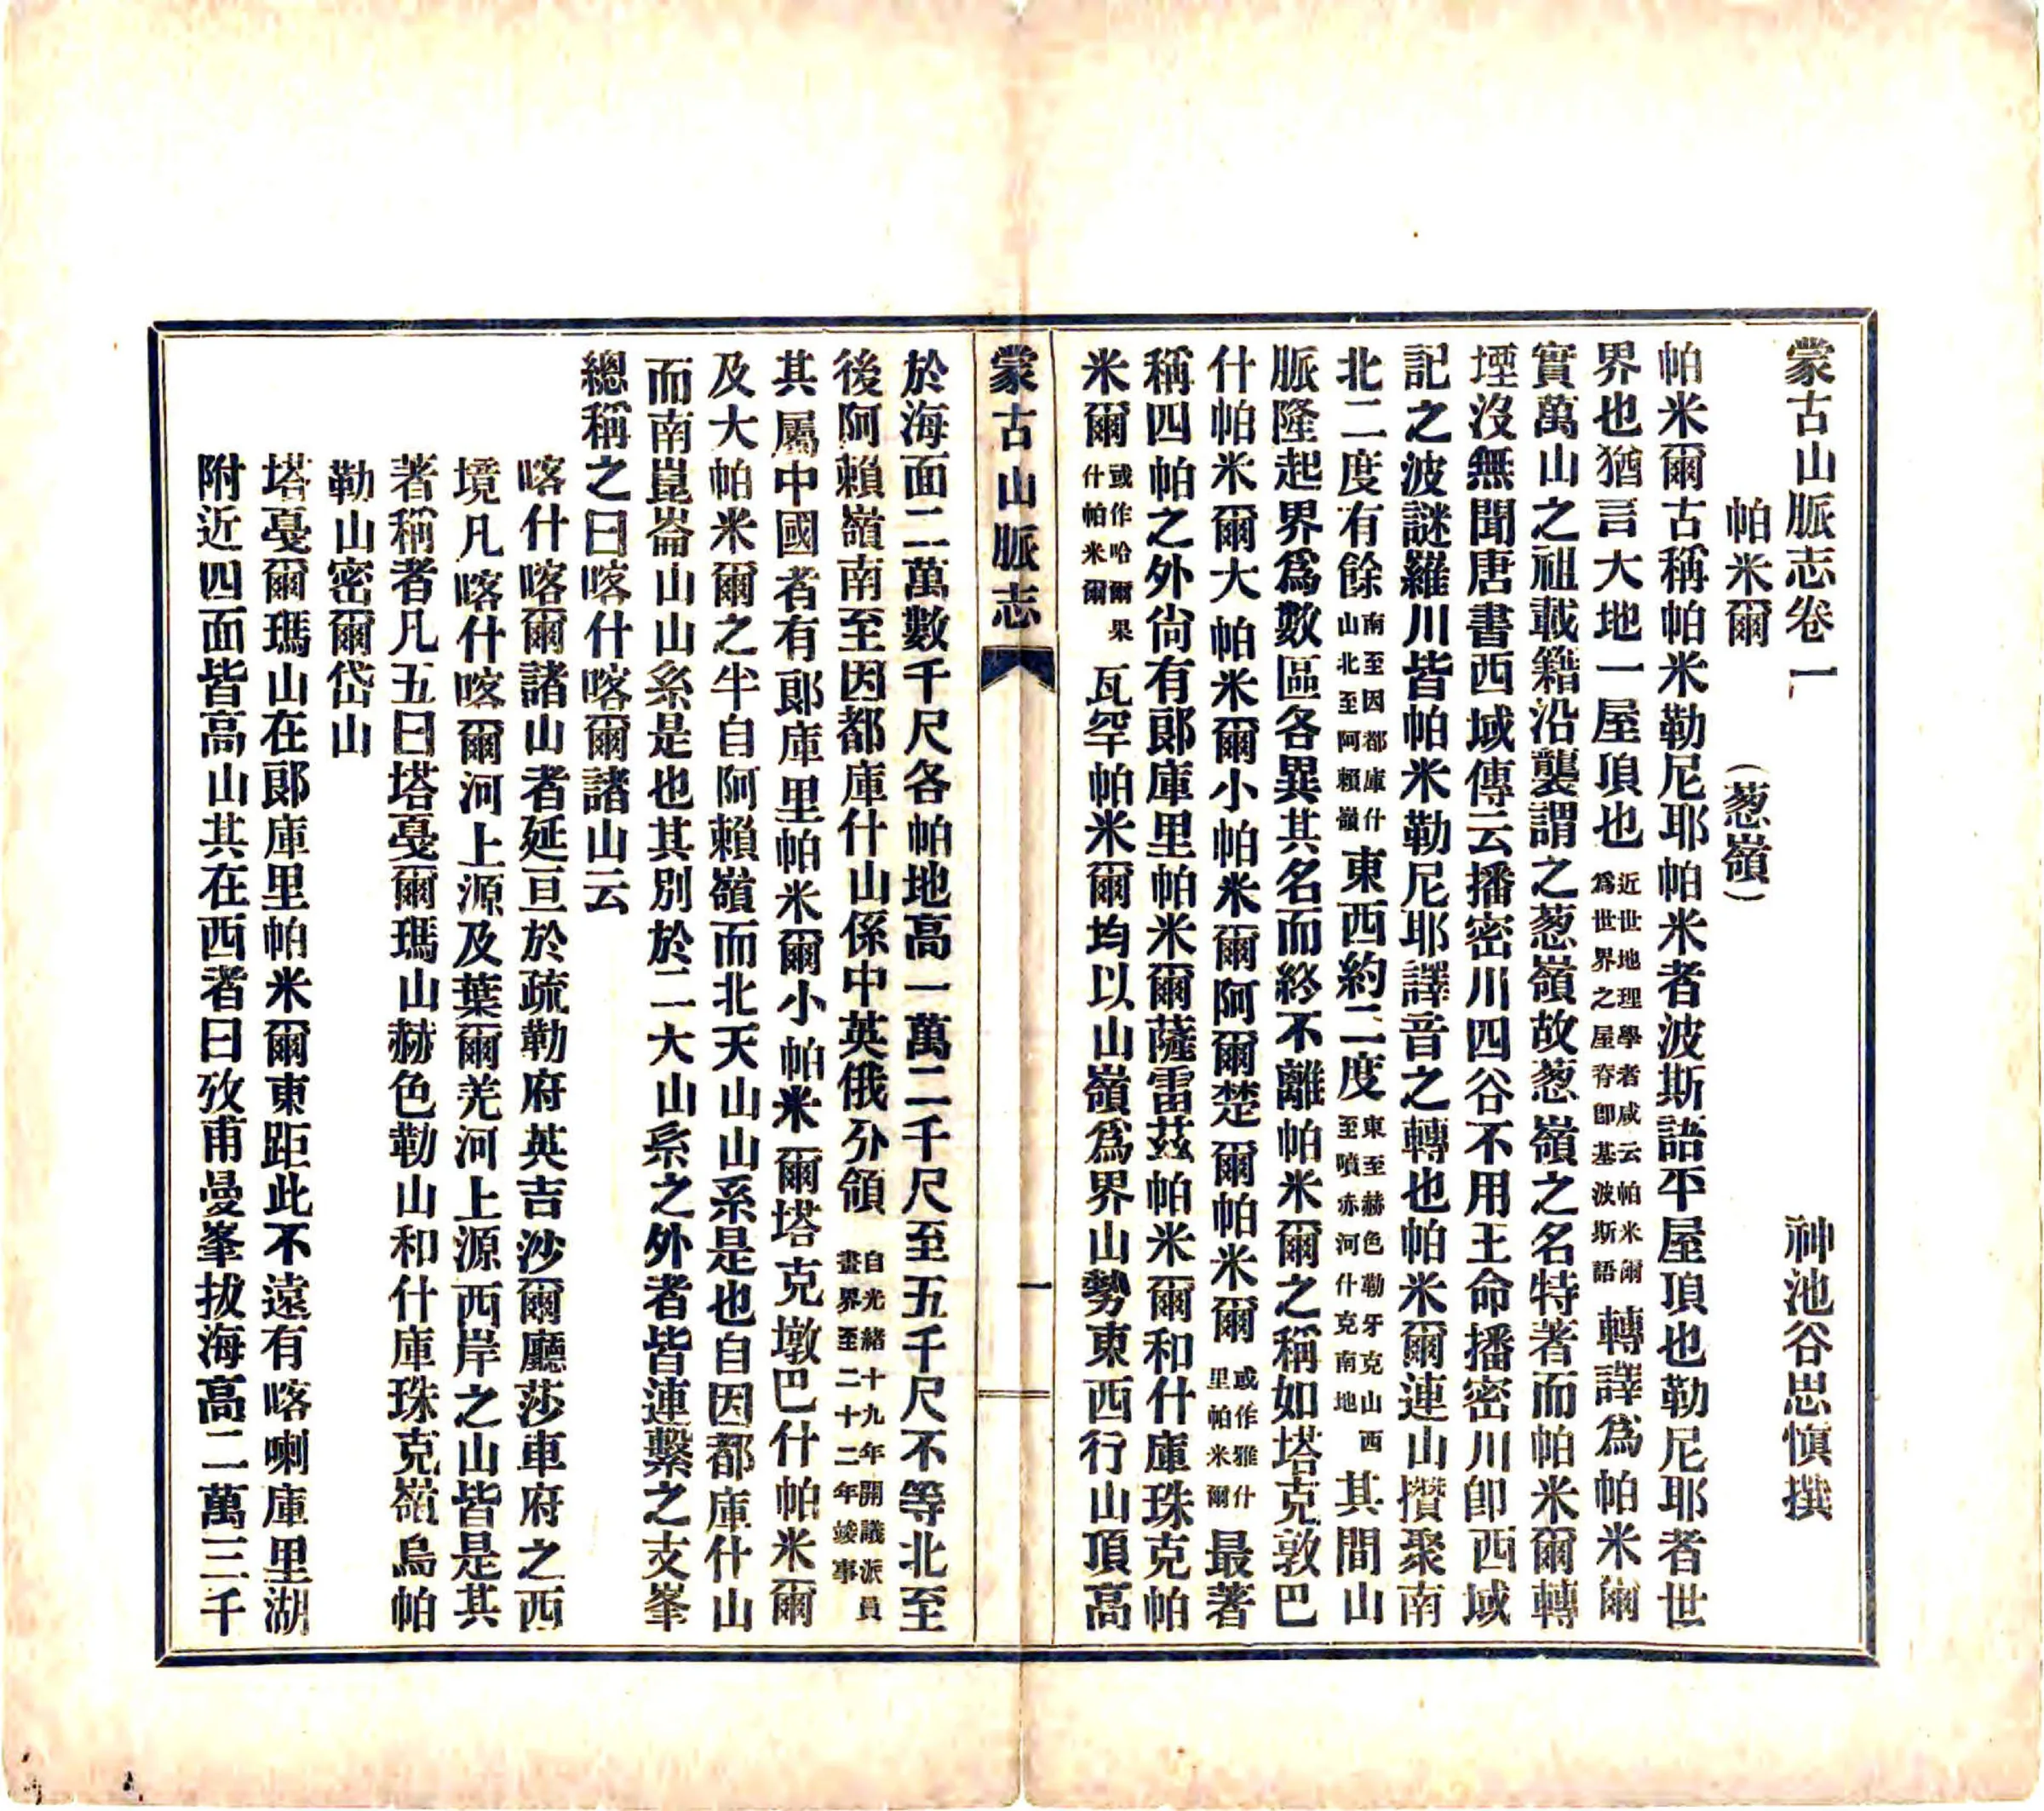 蒙古山脈志卷一　神池谷思慎撰
帕米爾　(葱嶺)
帕米爾古稱帕米勒尼耶帕米者波斯語平屋頂也勒尼耶者世
界也猶言大地一屋頂也近世地理學者咸云帕米爾為世界之屋脊卽基波斯語轉譯爲帕米爾
實萬山之祖載籍沿襲謂之葱嶺故葱嶺之名特著而帕米爾轉
堙沒無聞唐書西域傳云播密川四谷不用王命播密川卽西域
記之波謎羅川皆帕米勒尼耶譯音之轉也帕米爾連山攢聚南
北二度有餘南至因都庫什山北至阿賴嶺東西約二度東至赫色勒牙克山西至噴赤河什克南地其間山
脈隆起界爲數區各異其名而終不離帕米爾之稱如塔克敦巴
什帕米爾大帕米爾小帕米爾阿爾楚爾帕米爾或作雅什里帕米爾最著
稱四帕之外尙有郞庫里帕米爾薩雷茲帕米爾和什庫珠克帕
米爾或作哈爾果什帕米爾瓦罕帕米爾均以山嶺爲界山勢東西行山頂高
蒙古山脈志　一
於海面二萬數千尺各帕地高一萬二千尺至五千尺不等北至
後阿賴嶺南至因都庫什山係中英俄分領自光緒十九年開議派員畫界至二十二年竣事
其屬中國者有郞庫里帕米爾小帕米爾塔克墩巴什帕米爾
及大帕米爾之半自阿賴嶺而北天山山系是也自因都庫什山
而南崑崙山山系是也其別於二大山系之外者皆連繫之支峯
總稱之曰喀什喀爾諸山云
喀什喀爾諸山者延亘於疏勒府英吉沙爾廳莎車府之西
境凡喀什喀爾河上源及葉爾羌河上源西岸之山皆是其
著稱者凡五曰塔戞爾瑪山赫色勒山和什庫珠克嶺烏帕
勒山密爾岱山
塔戞爾瑪山在郞庫里帕米爾東距此不遠有喀喇庫里湖
附近四面皆高山其在西者曰攷甫曼峯拔海高二萬三千